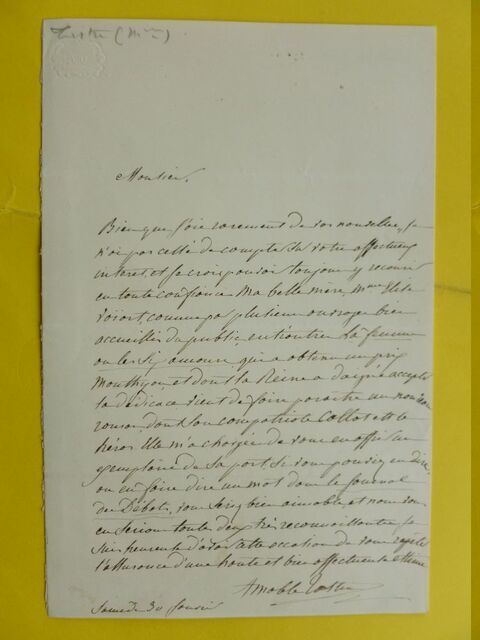 Tastu (Mme)
Monsieur,
Bien que j'aie rarement de vos nouvelles, je
n'ai pas cessé de compter sur votre affectueux
interet, et je crois pouvoir toujours y recourir
en toute confiance. Ma belle mère, Mme Elise
Voïart, connue par plusieurs ouvrages bien
accueillis du public, entr'autres La femme
ou les Six amours, qui a obtenu un prix
Monthyon, et dont la Reine a daigné accepter
la dédicace vient de faire paraître un nouveau
roman, dont son compatriote Callot est le
héros. Elle m'a chargée de vous en offrir un
exemplaire de sa part. Si vous pouviez en dire,
ou en faire dire un mot dans le Journal
des Débats, vous seriez bien aimable et nous vous
en serions toutes deux très reconnaissantes. Je
suis heureuse d'avoir cette occasion de vous repeter
l'assurance d'une haute et bien affectueuse estime
Amable Tastu
Samedi 30 janvier